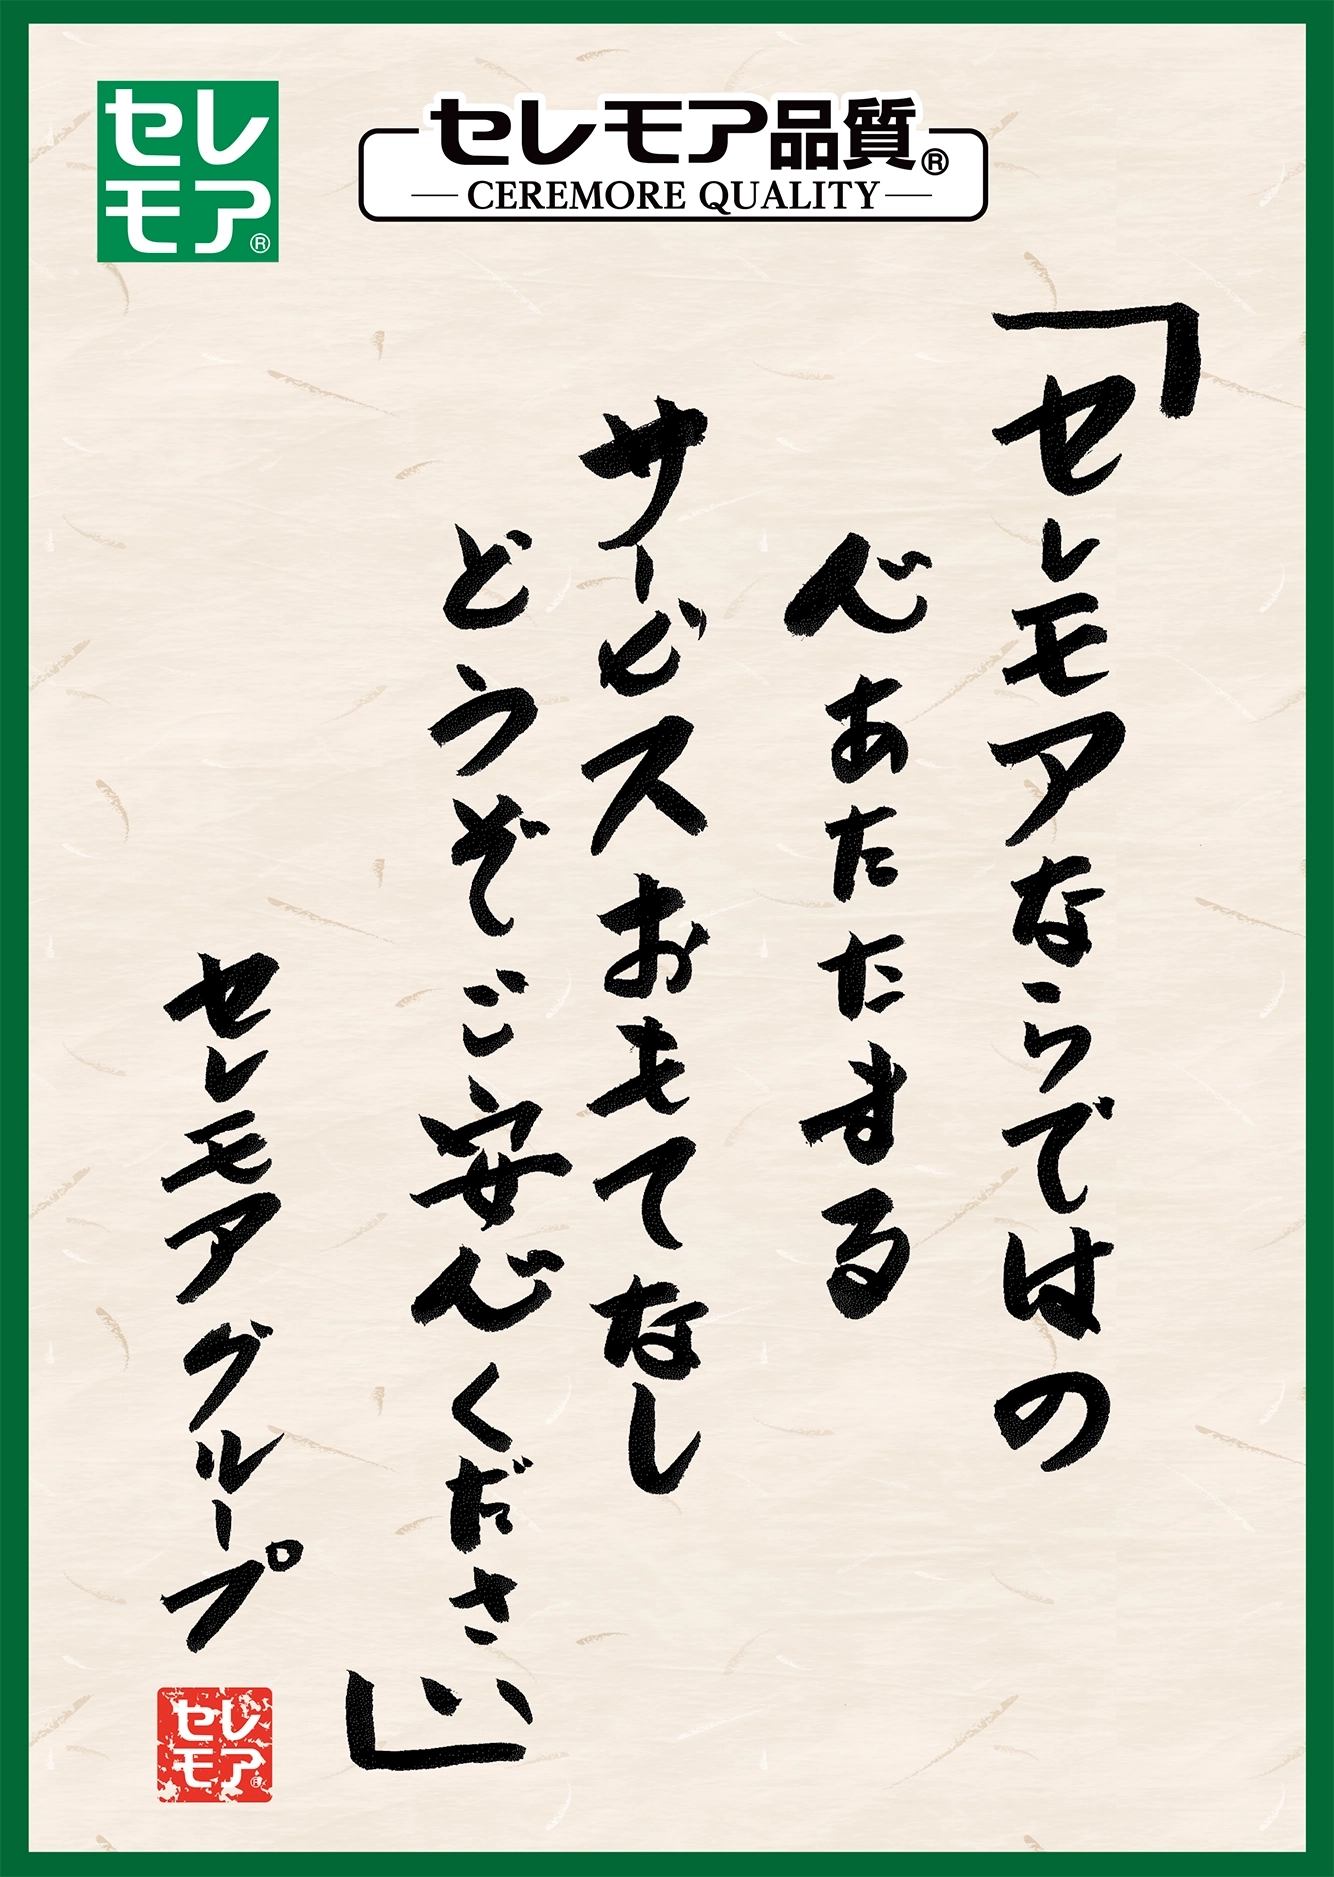 セレ
モア®
セレモア品質®
CEREMORE QUALITY
「セレモアならではの
心あたたまる
サービスおもてなし
どうぞご安心ください」
セレモアグループ
セレ
モア®